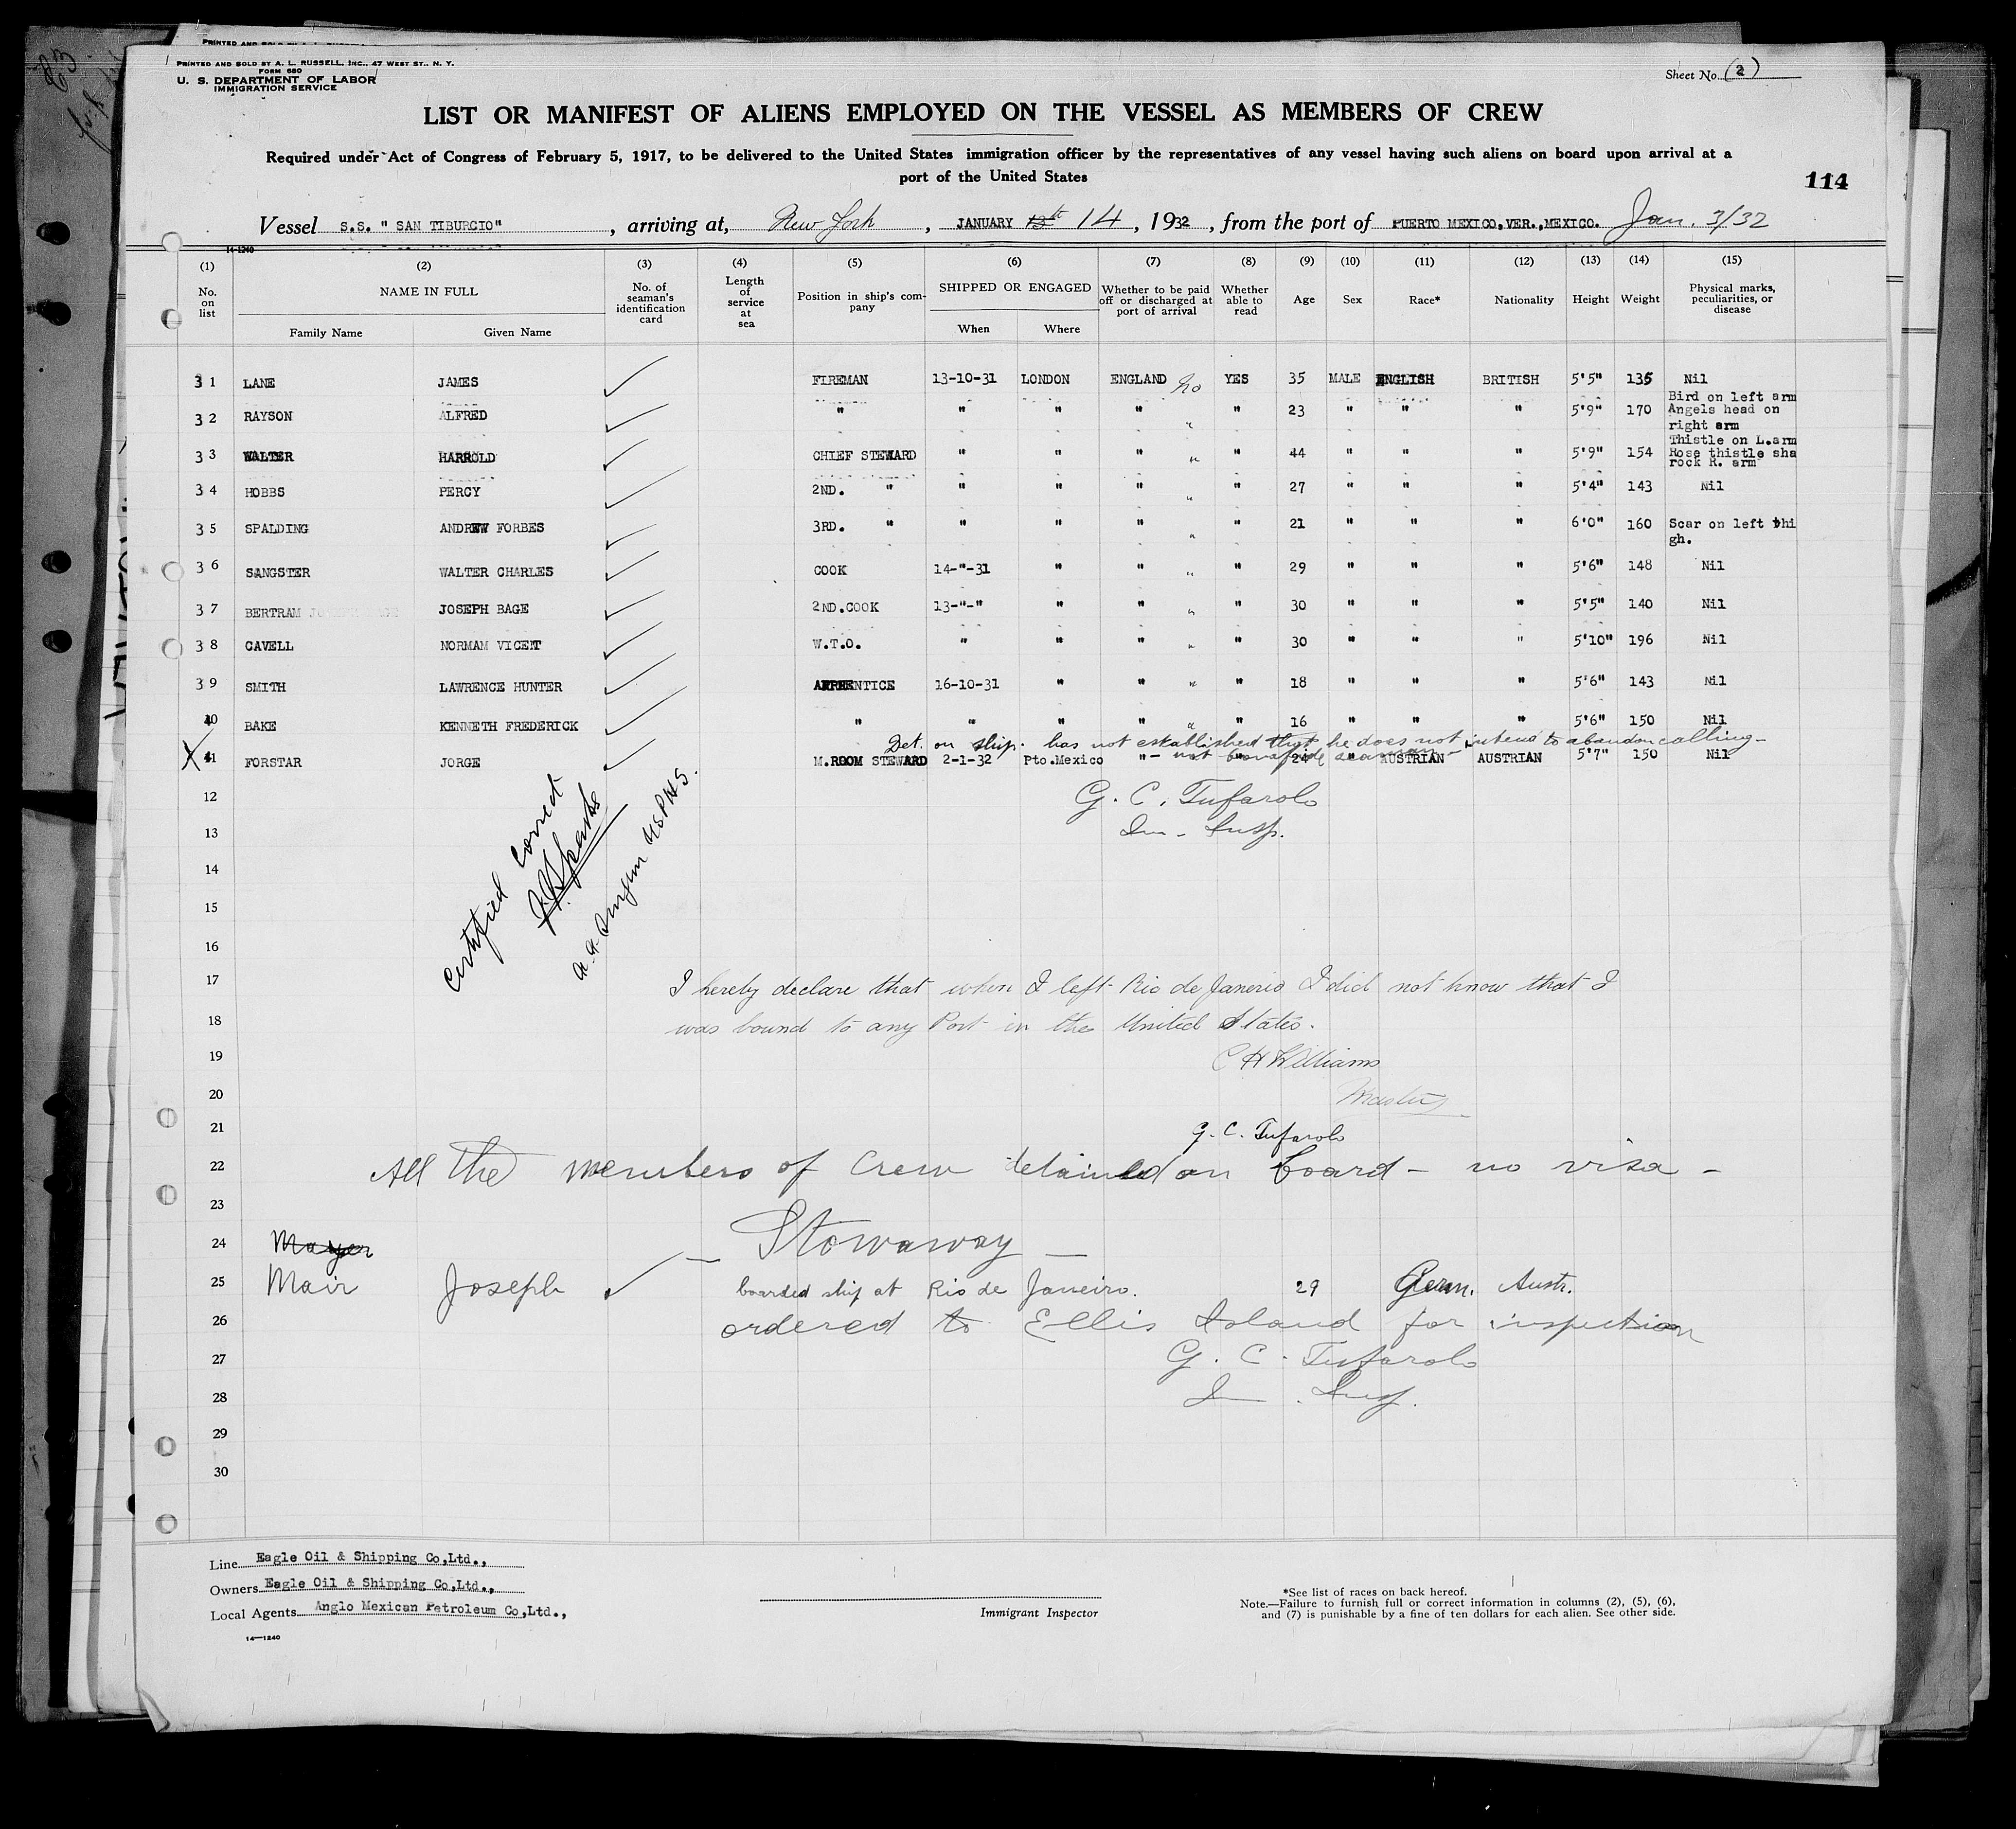 PRINTED AND SOLD BY A. L. RUSSELL, INC., 47 WEST ST., N. Y.
FORM 680
U. S. DEPARTMENT OF LABOR
IMMIGRATION SERVICE
Sheet No. (2)
LIST OR MANIFEST OF ALIENS EMPLOYED ON THE VESSEL AS MEMBERS OF CREW
Required under Act of Congress of February 5, 1917, to be delivered to the United States immigration officer by the representatives of any vessel having such aliens on board upon arrival at a
port of the United States
114
Vessel S.S. " SAN TIBURCIO" , arriving at, New York , JANUARY 13th 14 , 1932 , from the port of PUERTO MEXICO,VER.,MEXICO. Jan. 3/32
14-1240
(1) No. on list (2) NAME IN FULL Family Name Given Name (3) No. of seaman's identification card (4) Length of service at sea (5) Position in ship's company (6) SHIPPED OR ENGAGED When Where (7) Whether to be paid off or discharged at port of arrival (8) Whether able to read (9) Age (10) Sex (11) Race* (12) Nationality (13) Height (14) Weight (15) Physical marks, peculiarities, or disease
31 LANE JAMES FIREMAN 13-10-31 LONDON ENGLAND no YES 35 MALE ENGLISH BRITISH 5'5" 135 Nil
32 RAYSON ALFRED " " " " " " 23 " " " 5'9" 170 Bird on left arm Angels head on right arm
33 WALTER HARROLD CHIEF STEWARD " " " " " 44 " " " 5'9" 154 Thistle on L.arm Rose thistle sha rock R. arm
34 HOBBS PERCY 2ND. " " " " " " 27 " " " 5'4" 143 Nil
35 SPALDING ANDREW FORBES 3RD. " " " " " " 21 " " " 6'0" 160 Scar on left thi gh.
36 SANGSTER WALTER CHARLES COOK 14-"-31 " " " " 29 " " " 5'6" 148 Nil
37 BERTRAM JOSEPH BAGE 2ND.COOK 13-"-" " " " " 30 " " " 5'5" 140 Nil
38 CAVELL NORMAM VICENT W.T.O. " " " " " 30 " " " 5'10" 196 Nil
39 SMITH LAWRENCE HUNTER APPRENTICE 16-10-31 " " " " 18 " " " 5'6" 143 Nil
40 BAKE KENNETH FREDERICK " " " " " " 16 " " " 5'6" 150 Nil
Det. on ship. has not established that he does not intend to abandon calling -
X 41 FORSTAR JORGE M.ROOM STEWARD 2-1-32 Pto.Mexico " - not bonafide seaman - " 24 " AUSTRIAN AUSTRIAN 5'7" 150 Nil
12 G. C. Tufarolo
13 Im. Insp.
14
Certified Correct
15
16
17 I hereby declare that when I left Rio de Janerio I did not know that I
18 was bound to any Port in the United States.
19 C H Williams
20 Master
21 G. C. Tufarolo
22 All the members of Crew detained on board - no visa -
23
24 Mayer - Stowaway -
25 Mair Joseph boarded ship at Rio de Janeiro. 29 Germ. Austr.
26 ordered to Ellis Island for inspection
27 G. C. Tufarolo
28 Im. Insp.
29
30
Line Eagle Oil & Shipping Co,Ltd.,
Owners Eagle Oil & Shipping Co,Ltd.,
Local Agents Anglo Mexican Petroleum Co,Ltd.,
14-1240
Immigrant Inspector
*See list of races on back hereof.
Note.—Failure to furnish full or correct information in columns (2), (5), (6),
and (7) is punishable by a fine of ten dollars for each alien. See other side.